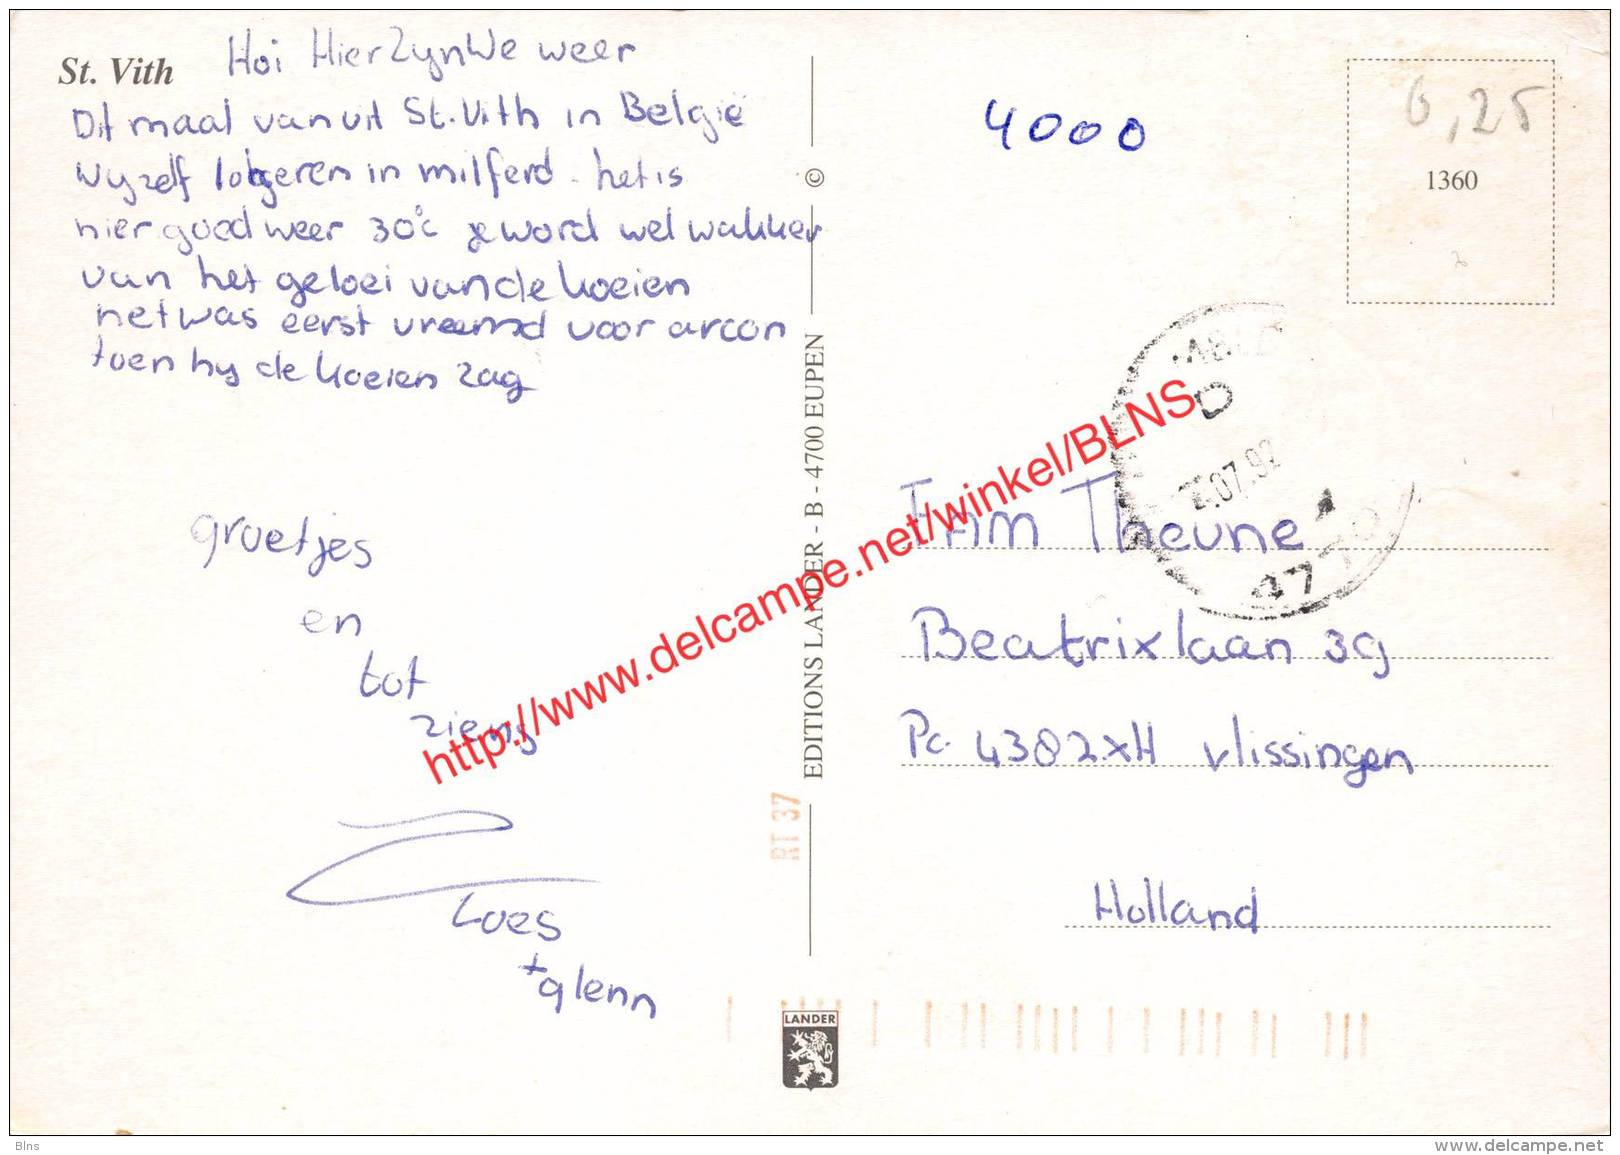 St. Vith
Hoi HierZynWe weer
Dit maal vanuit St. Vith in België
Wyzelf logeren in milferd. het is
hier goed weer 30°c je word wel wakker
van het geloei van de koeien
het was eerst vreemd voor arcon
toen hy de koeien zag
groetjes
en
tot
ziens
Loes
+ glenn
EDITIONS LANDER - B - 4700 EUPEN ©
RT 37
LANDER
4000
6,25
1360
.07.92
Fam Theune
Beatrixlaan 39
Pc. 4382XH Vlissingen
Holland
http://www.delcampe.net/winkel/BLNS
Blns
www.delcampe.net